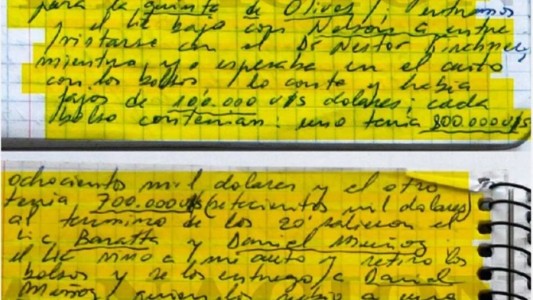 para la quinta de Olivos /. entramos
y el Lic bajo con Nelson a entre
vistarse con el Dr Nestor Kirchner,
mientras yo esperaba en el auto
con los bolsos / lo conte y habia
fajos de 100.000 u$s dolares; cada
bolso contenian: uno tenia 800.000 u$s
ochociento mil dolares y el otro
tenia 700.000 u$s (setecientos mil dolares)
al termino de los 20' salieron el
Lic Baratta y Daniel Muñoz
el Lic vino a mi auto y retiro los
bolsos y se los entrego a Daniel
Muñoz